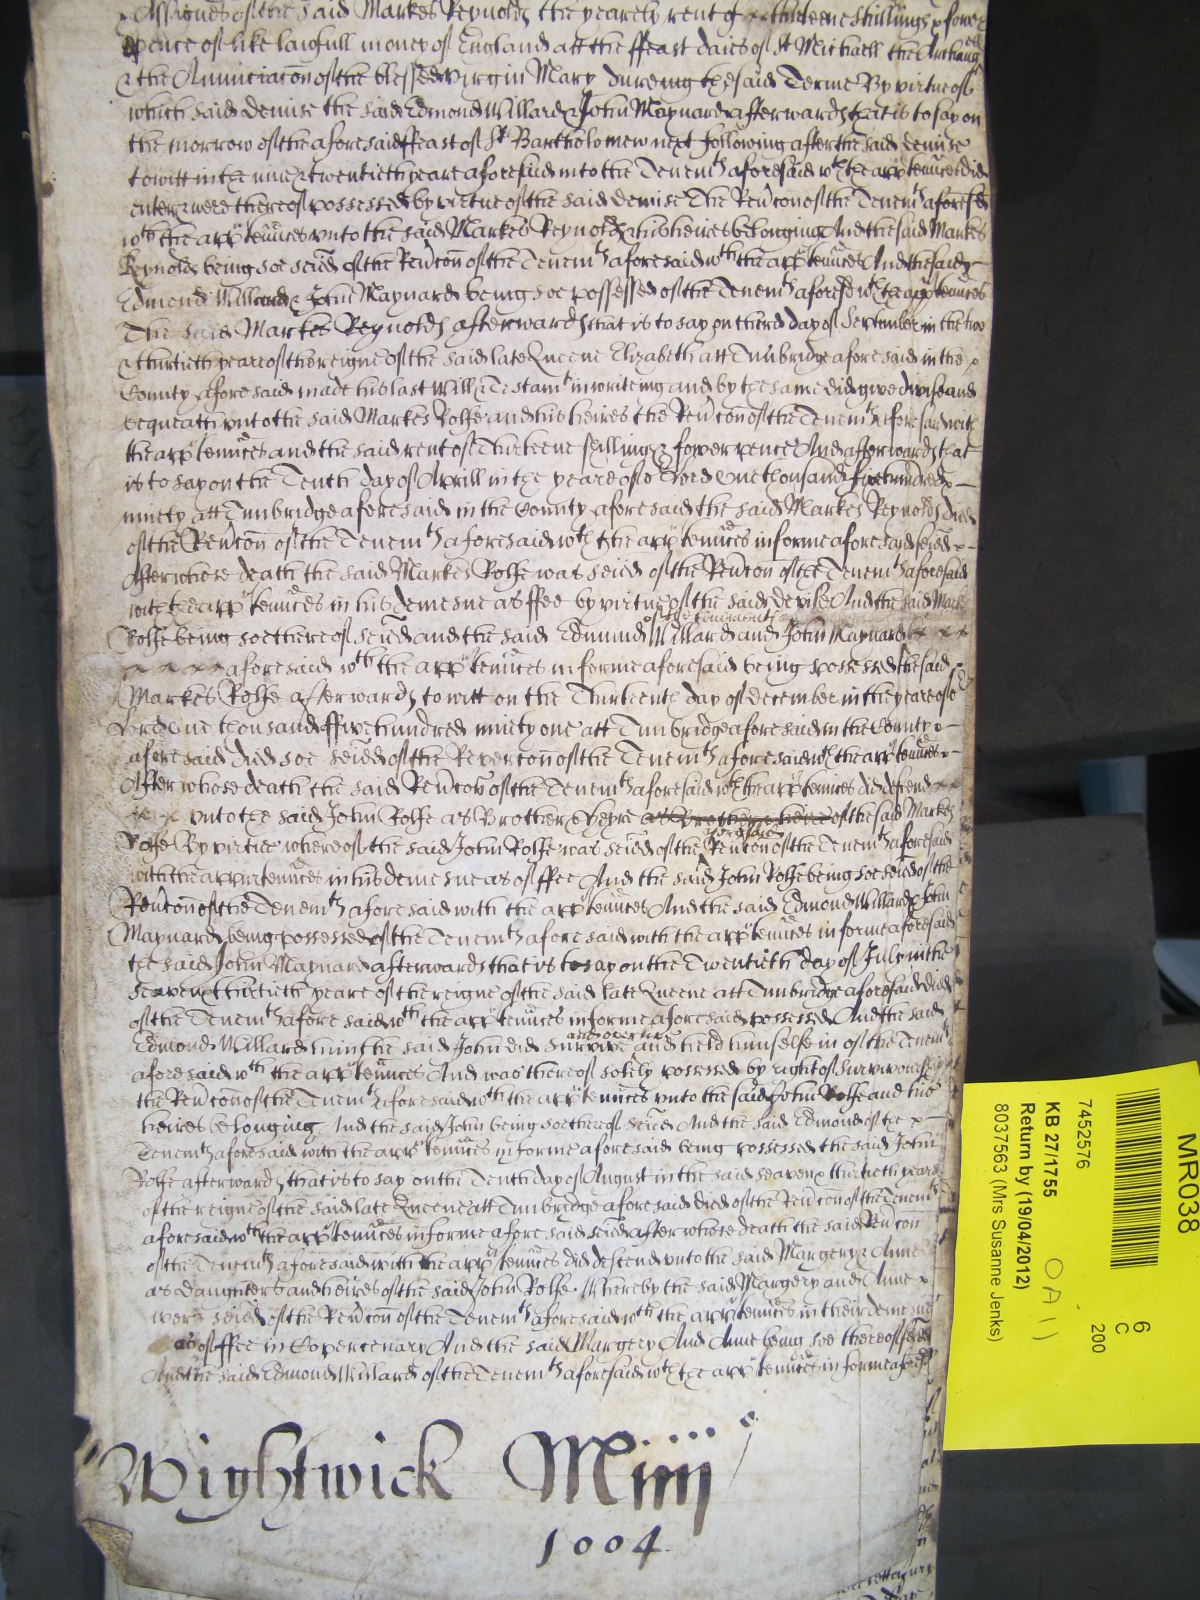 Assignes of the said Markes Reynolds the yearely rent of thirteene shillings & fower
pence of like lawfull money of England att the ffeast daies of St Michaell the Archang
& the Anunciacon of the blessed virgin Mary dureing the said Terme By virtue of
which said demise the said Edmond Willard & John Maynard afterwards that is to say on
the morrow of the aforesaid ffeast of St Bartholomew next following after the said demise
to witt in the nine & twentieth yeare aforesaid into the Tenemts aforesaid wth the appʼtennces did
enter & were thereof possessed by virtue of the said demise The Reu'con of the Tenemts aforesd
wth the appʼtennces vnto the said Markes Reynolds & his heires belonging And the said Markes
Reynolds being soe seied of the Reu'con of the Tenemts aforesaid wth the appʼtennces And the said
Edmond Willard & John Maynard being soe possessed of the Tenemts aforesd wth the appʼtennces
The said Markes Reynolds afterwards that is to say on third day of September in the two
& thirtieth yeare of the reigne of the said late Queene Elizabeth att Tunbridge aforesaid in the
County aforesaid made his last Will & Testamt in writeing and by the same did give devise and
bequeath vnto the said Markes Rolfe and his heires the Reu'con of the Tenemts aforesaid with
the appʼtennces and the said rent of Thirteene shillings fower pence And afterwards that
is to say on the Tenth day of Aprill in the yeare of o Lord One thousand fivehundred
ninety att Tunbridge aforesaid in the County aforesaid the said Markes Reynolds died
of the Reu'con of the Tenemts aforesaid wth the appʼtennces in forme aforesaid seied
After whose death the said Markes Rolfe was seied of the Reu'con of the Tenemts aforesaid
with the appʼtennces in his demesne as of ffee by virtue of the said devise And the said Markes
Rolfe being soe thereof seied and the said Edmund Willard and John Maynard of the tenements
aforesaid wth the appʼtennces in forme aforesaid being possessed the said
Markes Rolfe afterwards to witt on the Thirteenth day of December in the yeare of o
Lord One thousand ffive hundred ninety one att Tunbridge aforesaid in the County
aforesaid died soe seied of the Revercon of the Tenemts aforesaid wth the appʼtennces
After whose death the said Reu'con of the Tenemts aforesaid wth the appʼtennces did descend
vnto the said John Rolfe as Brother & heyre of the said Markes
Rolfe By virtue whereof the said John Rolfe was seied of the aforesaid Reu'con of the Tenemts aforesaid
with the appurtennces in his demesne as of ffee And the said John Rolfe being soe seied of the
Reu'con of the Tenemts aforesaid with the appʼtennces And the said Edmond Willard & John
Maynard being possessed of the Tenemts aforesaid with the appʼtennces in forme aforesaid
the said John Maynard afterwards that is to say on the Twentieth day of July in the
seaven & thirtieth yeare of the reigne of the said late Queene att Tunbridge aforesaid died
of the Tenemts aforesaid wth the appʼtennces in forme aforesaid possessed And the said
Edmond Willard him the said John did survive and held himselfe in of the Tenemts
aforesaid wth the appʼtennces And was thereof solely possessed by right of Survivorship
the Reu'con of the Tenemts aforesaid wth the appʼtennces vnto the said John Rolfe and his
heires belonging And the said John being soe thereof seied And the said Edmond of the
Tenemts aforesaid with the appʼtennces in forme aforesaid being possessed the said John
Rolfe afterwards that is to say on the Tenth day of August in the said seaven & thirtieth yeare
of the reigne of the said late Queene att Tunbridge aforesaid died of the Reu'con of the Tenemts
aforesaid wth the appʼtennces in forme aforesaid seied after whose death the said Reu'con
of the Tenemts aforesaid with the appʼtennces did descend vnto the said Margery & Anne
as daughters and heires of the said John Rolfe. Whereby the said Margery and Anne
were seied of the Reu'con of the Tenemts aforesaid wth the appʼtennces in their demesne
as of ffee in Copercenary And the said Margery And Anne being soe thereof seied
And the said Edmond Willard of the Tenemts aforesaid wth the appʼtennces in forme aforesd
Wightwick Miiij
1004
MR038
6
C
200
7452576
KB 27/1755
Return by (19/04/2012)
8037563 (Mrs Susanne Jenks)